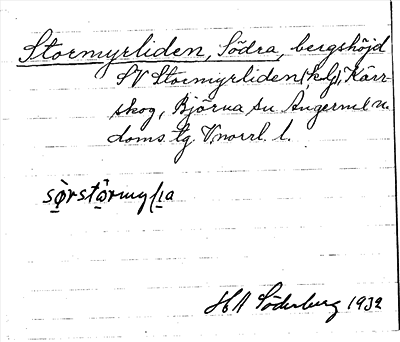 Stormyrliden, Södra, bergshöjd
SV Stormyrliden (kly), Kärr-
skog, Björna sn Ångerml n.
doms. tg. V.norrl. l.
sørstormyɽɩa
H A Söderberg 1932